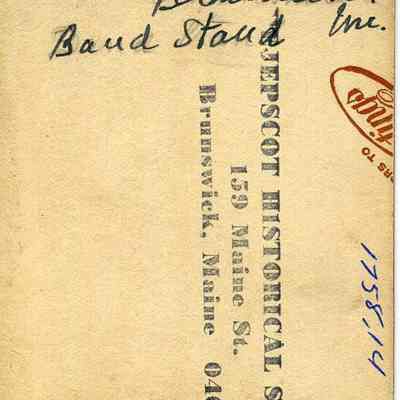 Band Stand Me.
JEPSCOT HISTORICAL S
159 Maine St.
Brunswick, Maine 040
1758.14
RS TO